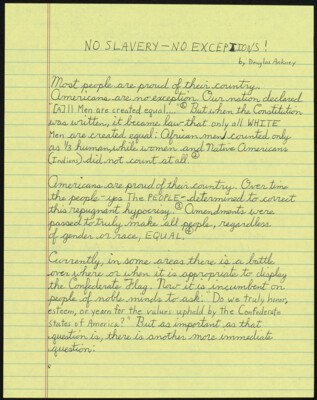 NO SLAVERY — NO EXCEPTIONS!
by Douglas Ankney
Most people are proud of their country.
Americans are no exception. Our nation declared
"[A]ll Men are created equal..." ① But when the Constitution
was written, it became law that only all WHITE
Men are created equal: African men counted only
as ⅗ human, while women and Native Americans
(Indian) did not count at all. ②
Americans are proud of their country. Over time
the people - yes THE PEOPLE - determined to correct
this repugnant hypocrisy. Amendments were
passed to truly make all people, regardless
of gender or race, EQUAL.
Currently, in some areas there is a battle
over where or when it is appropriate to display
the Confederate Flag. Now it is incumbent on
people of noble minds to ask: Do we truly honor,
esteem, or yearn for the values upheld by the Confederate
States of America? But as important as that
question is, there is another more immediate
question: